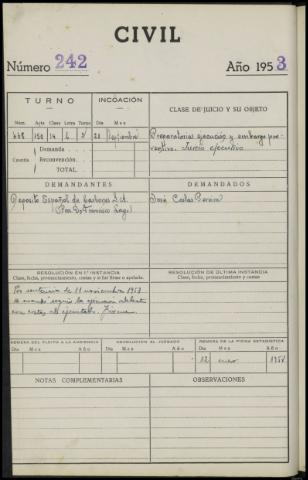 CIVIL
Número 242 Año 1953
TURNO INCOACIÓN CLASE DE JUICIO Y SU OBJETO
Núm. Acta Clase Letra Turno Día Mes
14 28 Septiembre Preparatorias ejecución y embargo pre-
ventivo. Juicio ejecutivo
Cuantía Demanda
Reconvención
TOTAL
DEMANDANTES DEMANDADOS
Deposito Español de Carbones S.A. José
RESOLUCIÓN EN 1ª INSTANCIA RESOLUCIÓN DE ÚLTIMA INSTANCIA
Clase, fecha, pronunciamiento, costas y si fue firme o apelada. Clase, fecha, pronunciamiento y costas
Por sentencia de 11 noviembre 1953
se mandó seguir la ejecución adelante
con costas al ejecutado. Firme
REMESA DEL PLEITO A LA AUDIENCIA DEVOLUCIÓN AL JUZGADO REMESA DE LA FICHA ESTADÍSTICA
Día Mes Año Día Mes Año Día Mes Año
12 enero 1954
NOTAS COMPLEMENTARIAS OBSERVACIONES